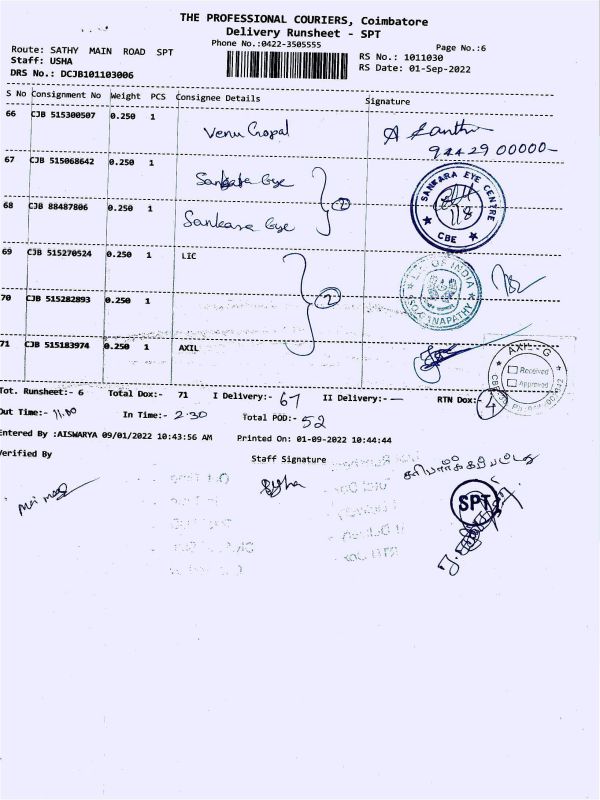 THE PROFESSIONAL COURIERS, Coimbatore
Delivery Runsheet - SPT
Phone No.:0422-3505555
Page No.:6
Route: SATHY MAIN ROAD SPT
Staff: USHA
DRS No.: DCJB101103006
RS No.: 1011030
RS Date: 01-Sep-2022
S No Consignment No Weight PCS Consignee Details Signature
66 CJB 515300507 0.250 1 Venu Gopal
94429 00000-
67 CJB 515068642 0.250 1 Sankara Eye
68 CJB 88487806 0.250 1 Sankara Eye
2
SANKARA EYE CENTRE
CBE
69 CJB 515270524 0.250 1 LIC
70 CJB 515282893 0.250 1
2
OF INDIA
71 CJB 515183974 0.250 1 AXIL
AXIL - G
Received
Approved
Tot. Runsheet:- 6 Total Dox:- 71 I Delivery:- 67 II Delivery:- — RTN Dox:- 4
Out Time:- 11.00 In Time:- 2.30 Total POD:- 52
Entered By :AISWARYA 09/01/2022 10:43:56 AM Printed On: 01-09-2022 10:44:44
Verified By Staff Signature
சரிபார்க்கப்பட்டது
SPT